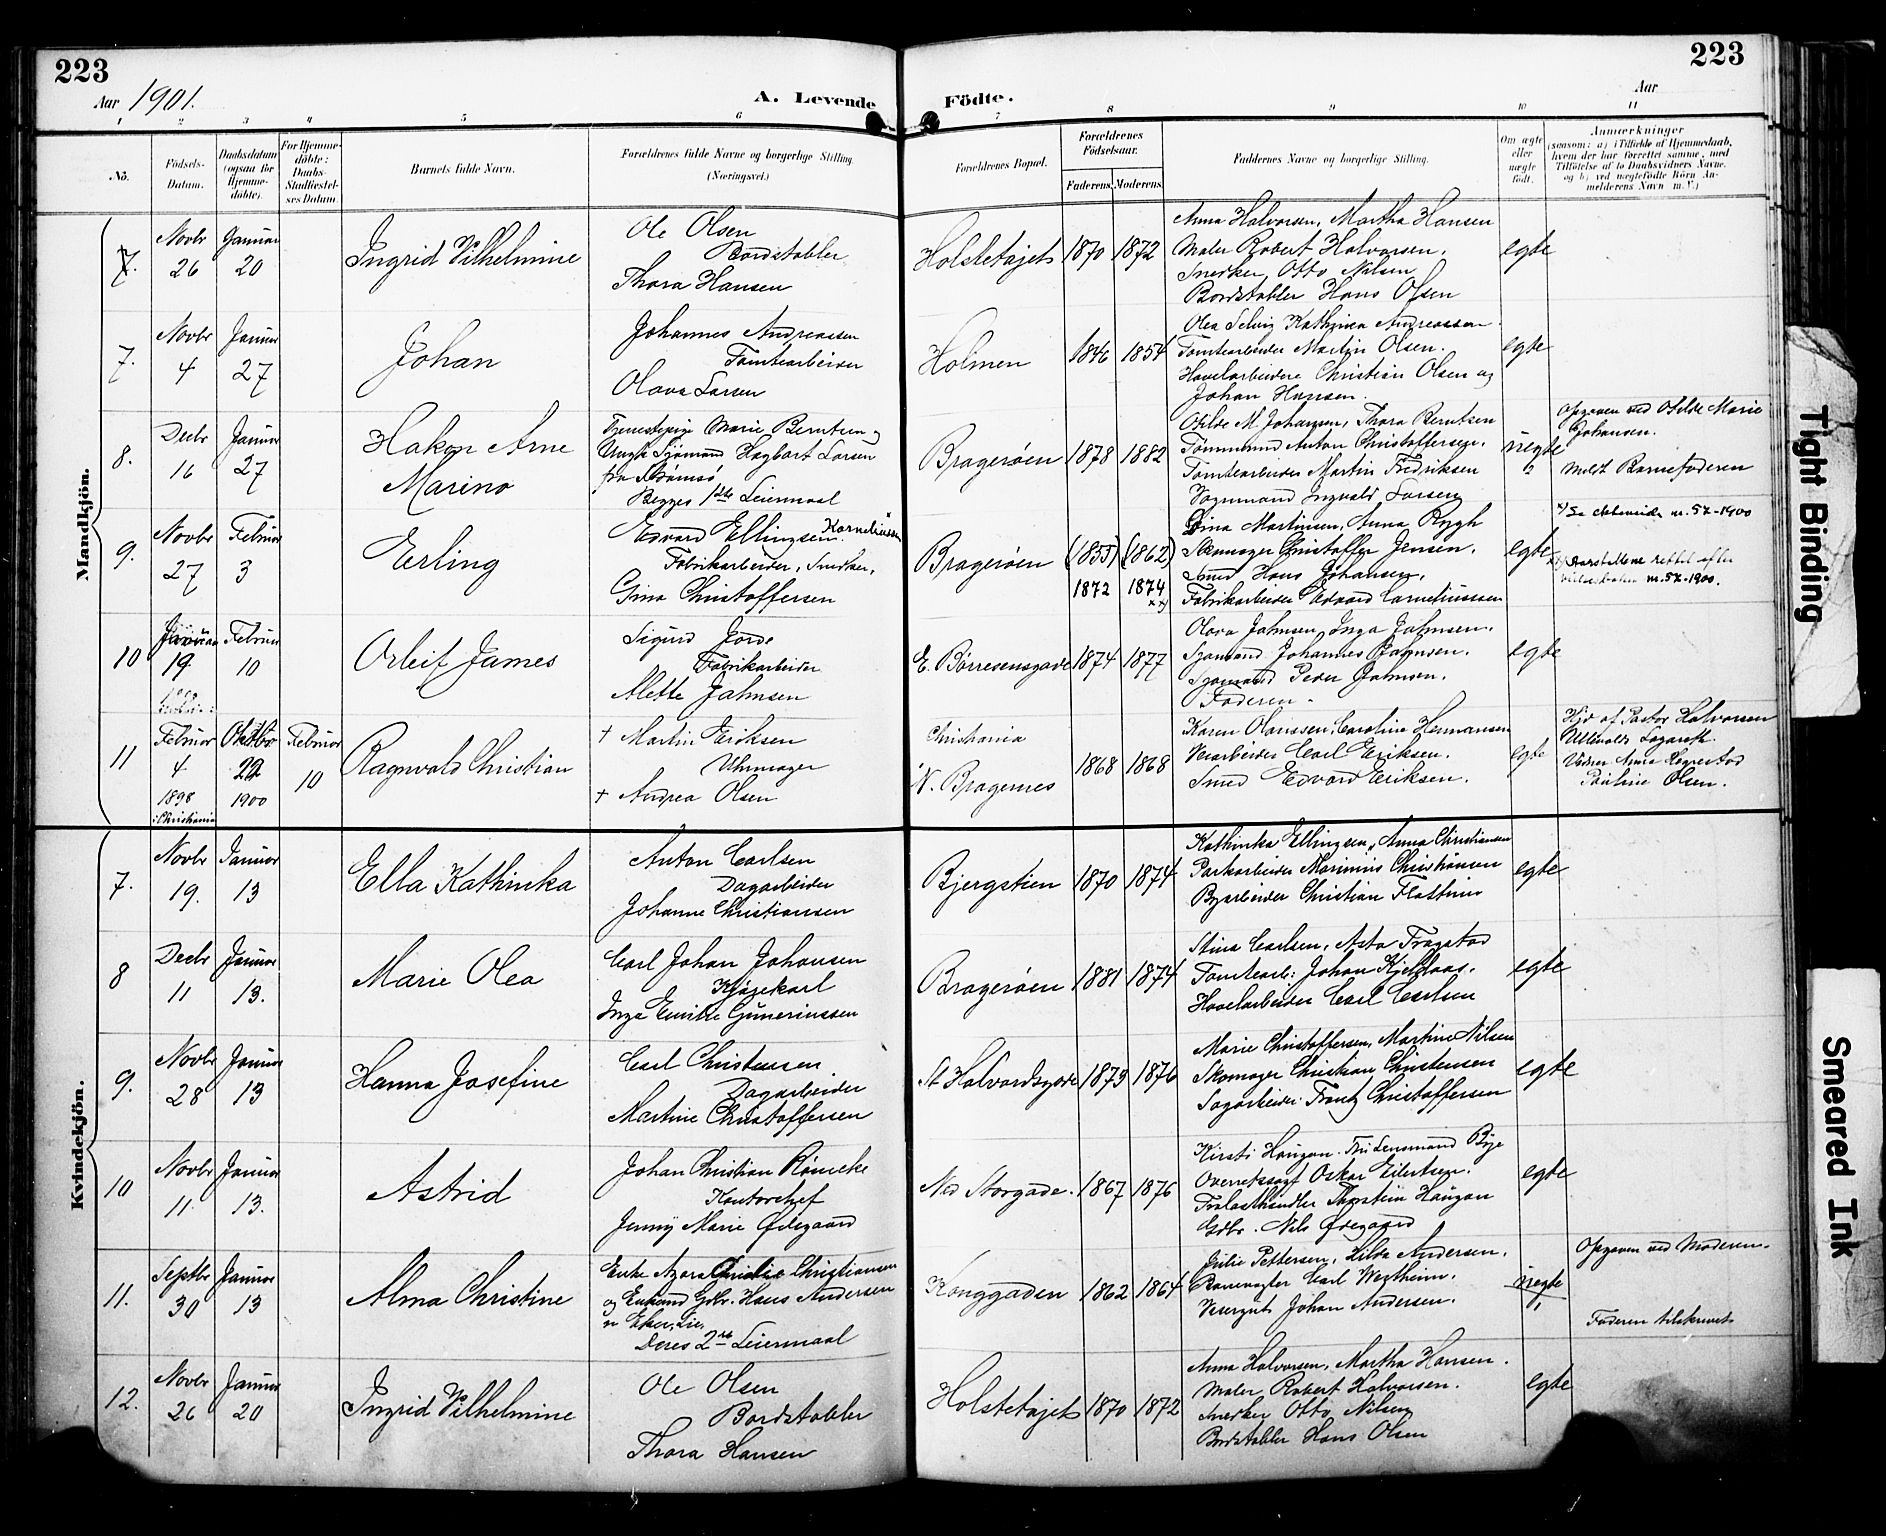 223
223
Aar 1901.
A. Levende
Födte.
Aar
1 2 3 4 5 6 7 8 9 10 11
No.
Födsels-
Datum.
Daabsdatum
(ogsaa for
Hjemme-
döbte).
For Hjemme-
döbte:
Daabs-
Stadfæstel-
ses Datum.
Barnets fulde Navn.
Forældrenes fulde Navne og borgerlige Stilling.
(Næringsvei.)
Forældrenes Bopæl.
Forældrenes
Födselsaar.
Faderens.
Moderens.
Faddernes Navne og borgerlige Stilling.
Om ægte
eller
uægte
födt.
Anmærkninger
(saasom: a) i Tilfælde af Hjemmedaab,
hvem der har forrettet samme, med
Tilföielse af to Daabsvidners Navne,
og b) ved uægtefödte Börn An-
melderens Navn m. V.)
Mandkjön.
7.
Novbr
26
Januar
20
Ingrid Vilhelmine
Ole Olsen
Bordstabler
Thora Hansen
Holstetajet
1870
1872
Anna Halvorsen, Martha Hansen
Maler Robert Halvorsen.
Snedker Otto Nilsen
Bordstabler Hans Olsen
egte
7.
Novbr
4
Januar
27
Johan
Johannes Andreassen
Tomtearbeider
Olava Larsen
Holmen
1846
1854
Olea Selvig Kathrina Andreassen
Tomtearbeider Martin Olsen.
Havelarbeidere Christian Olsen og
Johan Hansen.
egte
8.
Decbr
16
Januar
27
Hakon Arne
Marino
Tjenestepige Marie Berntsen og
Ungk Sjømand Dagbart Larsen
fra Strømsø
Begges 1ste Leiermaal
Bragerøen
1878
1882
Otilde M Johansen, Thora Berntsen
Tømmermand Anton Christoffersen.
Tomtearbeider Martin Fredriksen
Vognmand Ingvald Larsen
uegte
Opgaven ved Otilde Marie
Johansen.
Meldt Barnefaderen
9.
Novbr
27
Februar
3
Erling
Edvard Ellingsen Korneliussen
Fabrikarbeider, Snedker,
Gina Christoffersen
Bragerøen
(1855)
1872
(1862)
1874
xx)
Gina Martinsen, Anna Rygh
Skomager Christoffer Jensen.
Smed Hans Johansen,
Fabrikarbeider Edvard Corneliussen
egte
nr. 57-1900
Aarstallene rettet efter
nr. 57-1900.
10
Januar
19
Februar
10
Orleif James
Sigurd Jorde
Fabrikarbeider
Alette Jahnsen
E. Børresensgade
1874
1877
Olava Jahnsen, Inga Jahnsen.
Sjømand Johannes Jahnsen.
Sjømand Peder Jahnsen.
Faderen.
egte
11
Februar
4
1898
i Christiania
Oktbr
22
1900
Februar
10
Ragnvald Christian
† Martin Eriksen
Uhrmager
† Andrea Olsen
Christiania
N. Bragernes
1868
1868
Karen Olaussen, Caroline Hermansen
Carl Eriksen.
Smed Edvard Eriksen.
egte
Hjd af Pastor Halvorsen
Ullevolds Lazareth.
Vidner Anna Legrestad
Pauline Olsen.
Kvindekjön.
7.
Novbr
19.
Januar
13
Ella Kathinka
Anton Carlsen
Dagarbeider
Johanne Christiansen
Bjergstien
1870
1874
Kathinka Ellingsen, Anna Christiansen
Parkarbeider Marinius Christiansen
Byarbeider Christian
egte
8
Decbr
11
Januar
13.
Marie Olea
Carl Johan Johansen
Kjøgekarl
Inga Emilie Guneriussen
Bragerøen
1881
1874
Stina Carlsen, Asta Trøgstad
Tomtearb: Johan
Havelarbeider Carl Carlsen
egte
9.
Novbr
28
Januar
13
Hanna Josefine
Carl Christensen.
Dagarbeider
Martine Christoffersen
St Halvardsgade
1873
1876
Marie Christoffersen, Martine Nilsen
Skomager Christian Christensen
Sagarbeider Frantz Christoffersen
egte
10
Novbr
11
Januar
13.
Astrid
Johan Christian Rømcke
Kontorchef
Jenny Marie Ødegaard
Ned Storgade.
1867
1876
Kirsti Haugan. Fru Lensmand Bye
Overretssagf Oskar Eilertsen.
Trælasthandler Thorstein Haugan
Gdbr. Nils Ødegaard
egte
11.
Septbr
30
Januar
13
Alma Christine
Enke Azora Christiansen
og Enkemd Gdbr. Hans Andersen
Eker, Lier
Deres 2net Leiermaal
Konggaden
1862
1864
Julie Pettersen, Hilda Andersen,
Banevogter Carl Westheim.
Visergut Johan Andersen.
uegte
Opgaven ved Moderen.
Faderen tilskrevet
12.
Novbr
26
Januar
20
Ingrid Vilhelmine
Ole Olsen
Bordstabler
Thora Hansen
Holstetajet
1870
1872
Anna Halvorsen, Martha Hansen.
Maler Robert Halvorsen.
Snedker Otto Nilsen
Bordstabler Hans Olsen
egte
Tight Binding
Smeared Ink